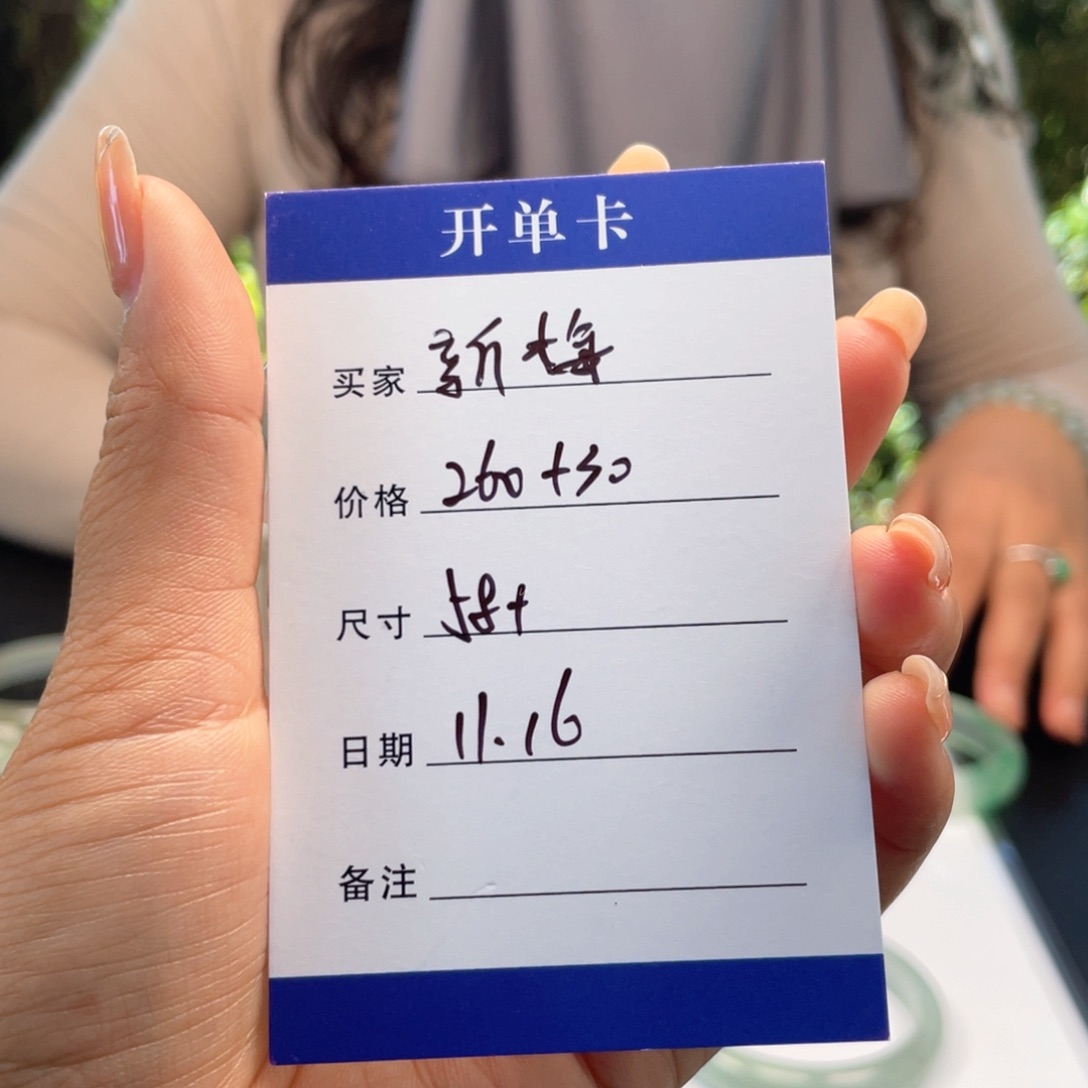 开单卡
买家 新梅
价格 260+30
尺寸 58+
日期 11.16
备注